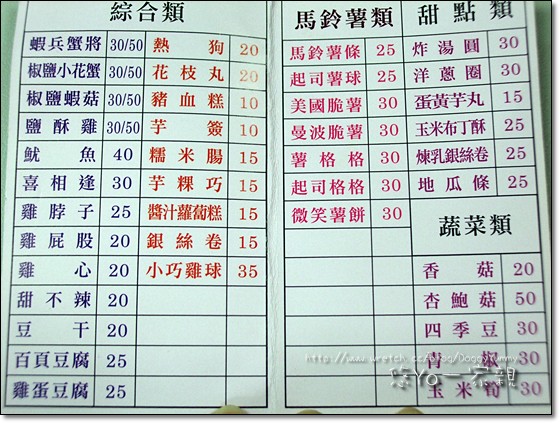 綜合類
蝦兵蟹將 30/50 熱狗 20
椒鹽小花蟹 30/50 花枝丸 20
椒鹽蝦菇 30/50 豬血糕 10
鹽酥雞 30/50 芋簽 10
魷魚 40 糯米腸 15
喜相逢 30 芋粿巧 15
雞脖子 25 醬汁蘿蔔糕 15
雞屁股 20 銀絲卷 15
雞心 20 小巧雞球 35
甜不辣 20
豆干 20
百頁豆腐 25
雞蛋豆腐 25
馬鈴薯類
馬鈴薯條 25
起司薯球 25
美國脆薯 30
曼波脆薯 30
薯格格 30
起司格格 30
微笑薯餅 30
甜點類
炸湯圓 30
洋蔥圈 30
蛋黃芋丸 15
玉米布丁酥 25
煉乳銀絲卷 25
地瓜條 25
蔬菜類
香菇 20
杏鮑菇 50
四季豆 30
青椒 30
玉米筍 30